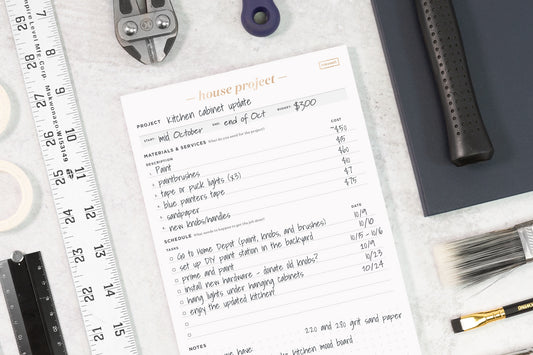 house project
PROJECT Kitchen cabinet update
START: mid October END: end of Oct BUDGET: $300
MATERIALS & SERVICES What do you need for the project?
DESCRIPTION
Paint
paintbrushes $15
tape or puck lights (x3) $60
blue painters tape
sandpaper $7
new knobs/handles $75
SCHEDULE What needs to happen to get the job done?
TASKS DATE
Go to Home Depot (paint, knobs, and brushes) 10/9
set up DIY paint station in the backyard 10/10
prime and paint 10/15 - 10/16
install new hardware - donate old knobs?
hang lights under hanging cabinets 10/23
enjoy the updated kitchen! 10/24
NOTES 220 and 280 grit sand paper
have: kitchen mood board
Empire Level Mfg. Corp. Mukwonago, WI 53149
29
28
27
26
25
24
23
22
21
20
19
18
17
16
15